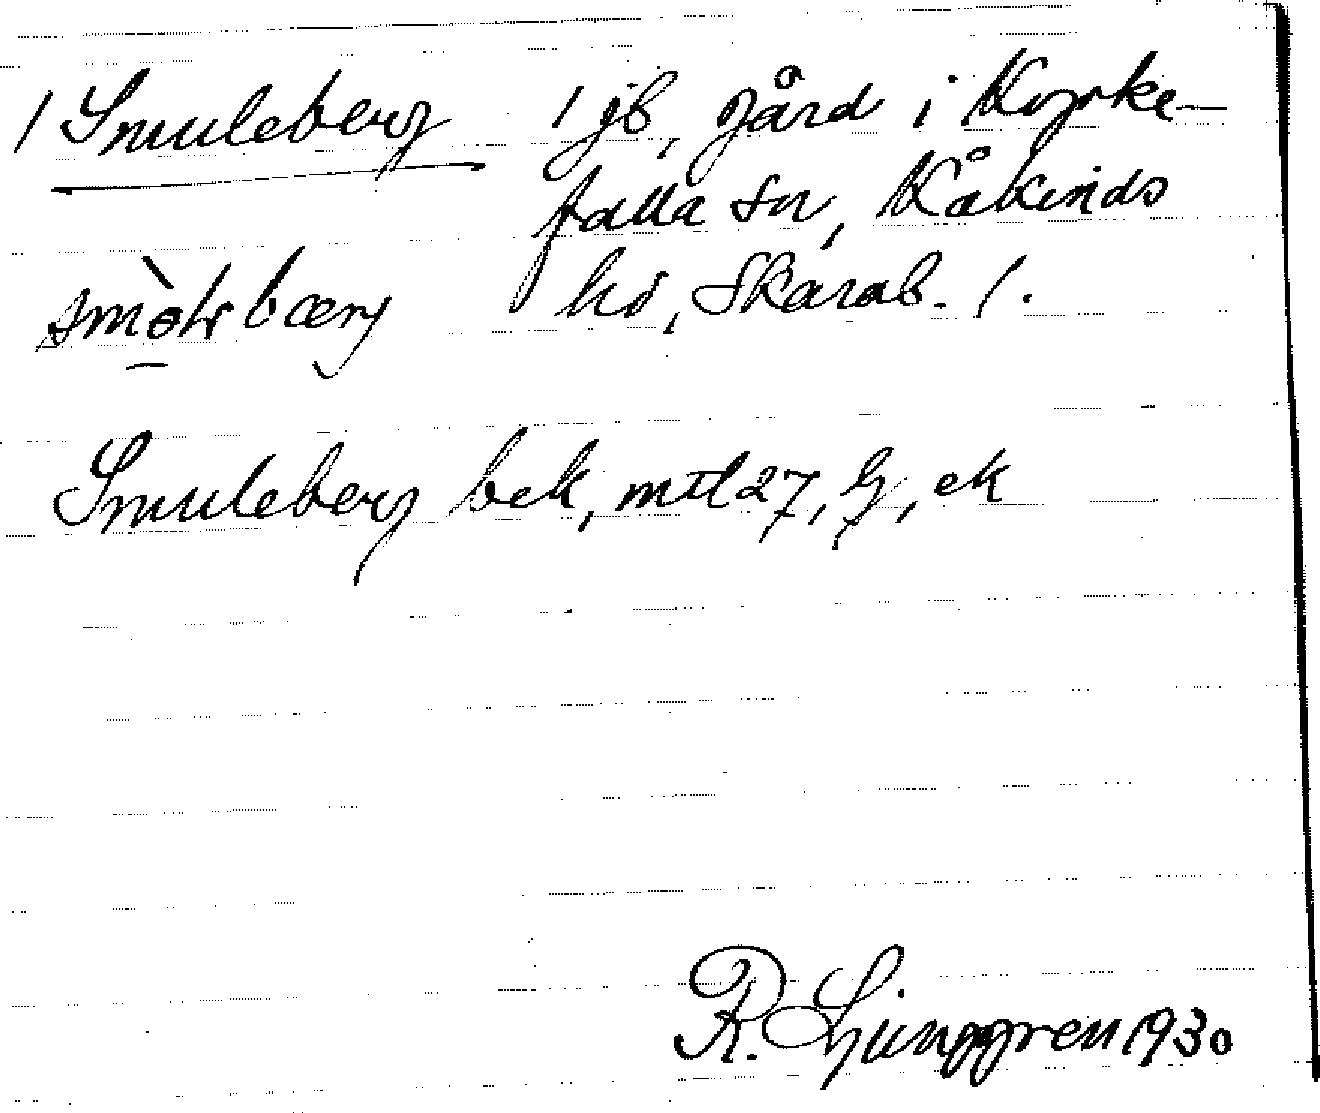 / Smuleberg / jb, gård i Kyrke-
falla sn, Kåkinds
hd, Skarab. /.
Smuleberg bek, mtl 27, G, ek
R. Ljunggren 1930